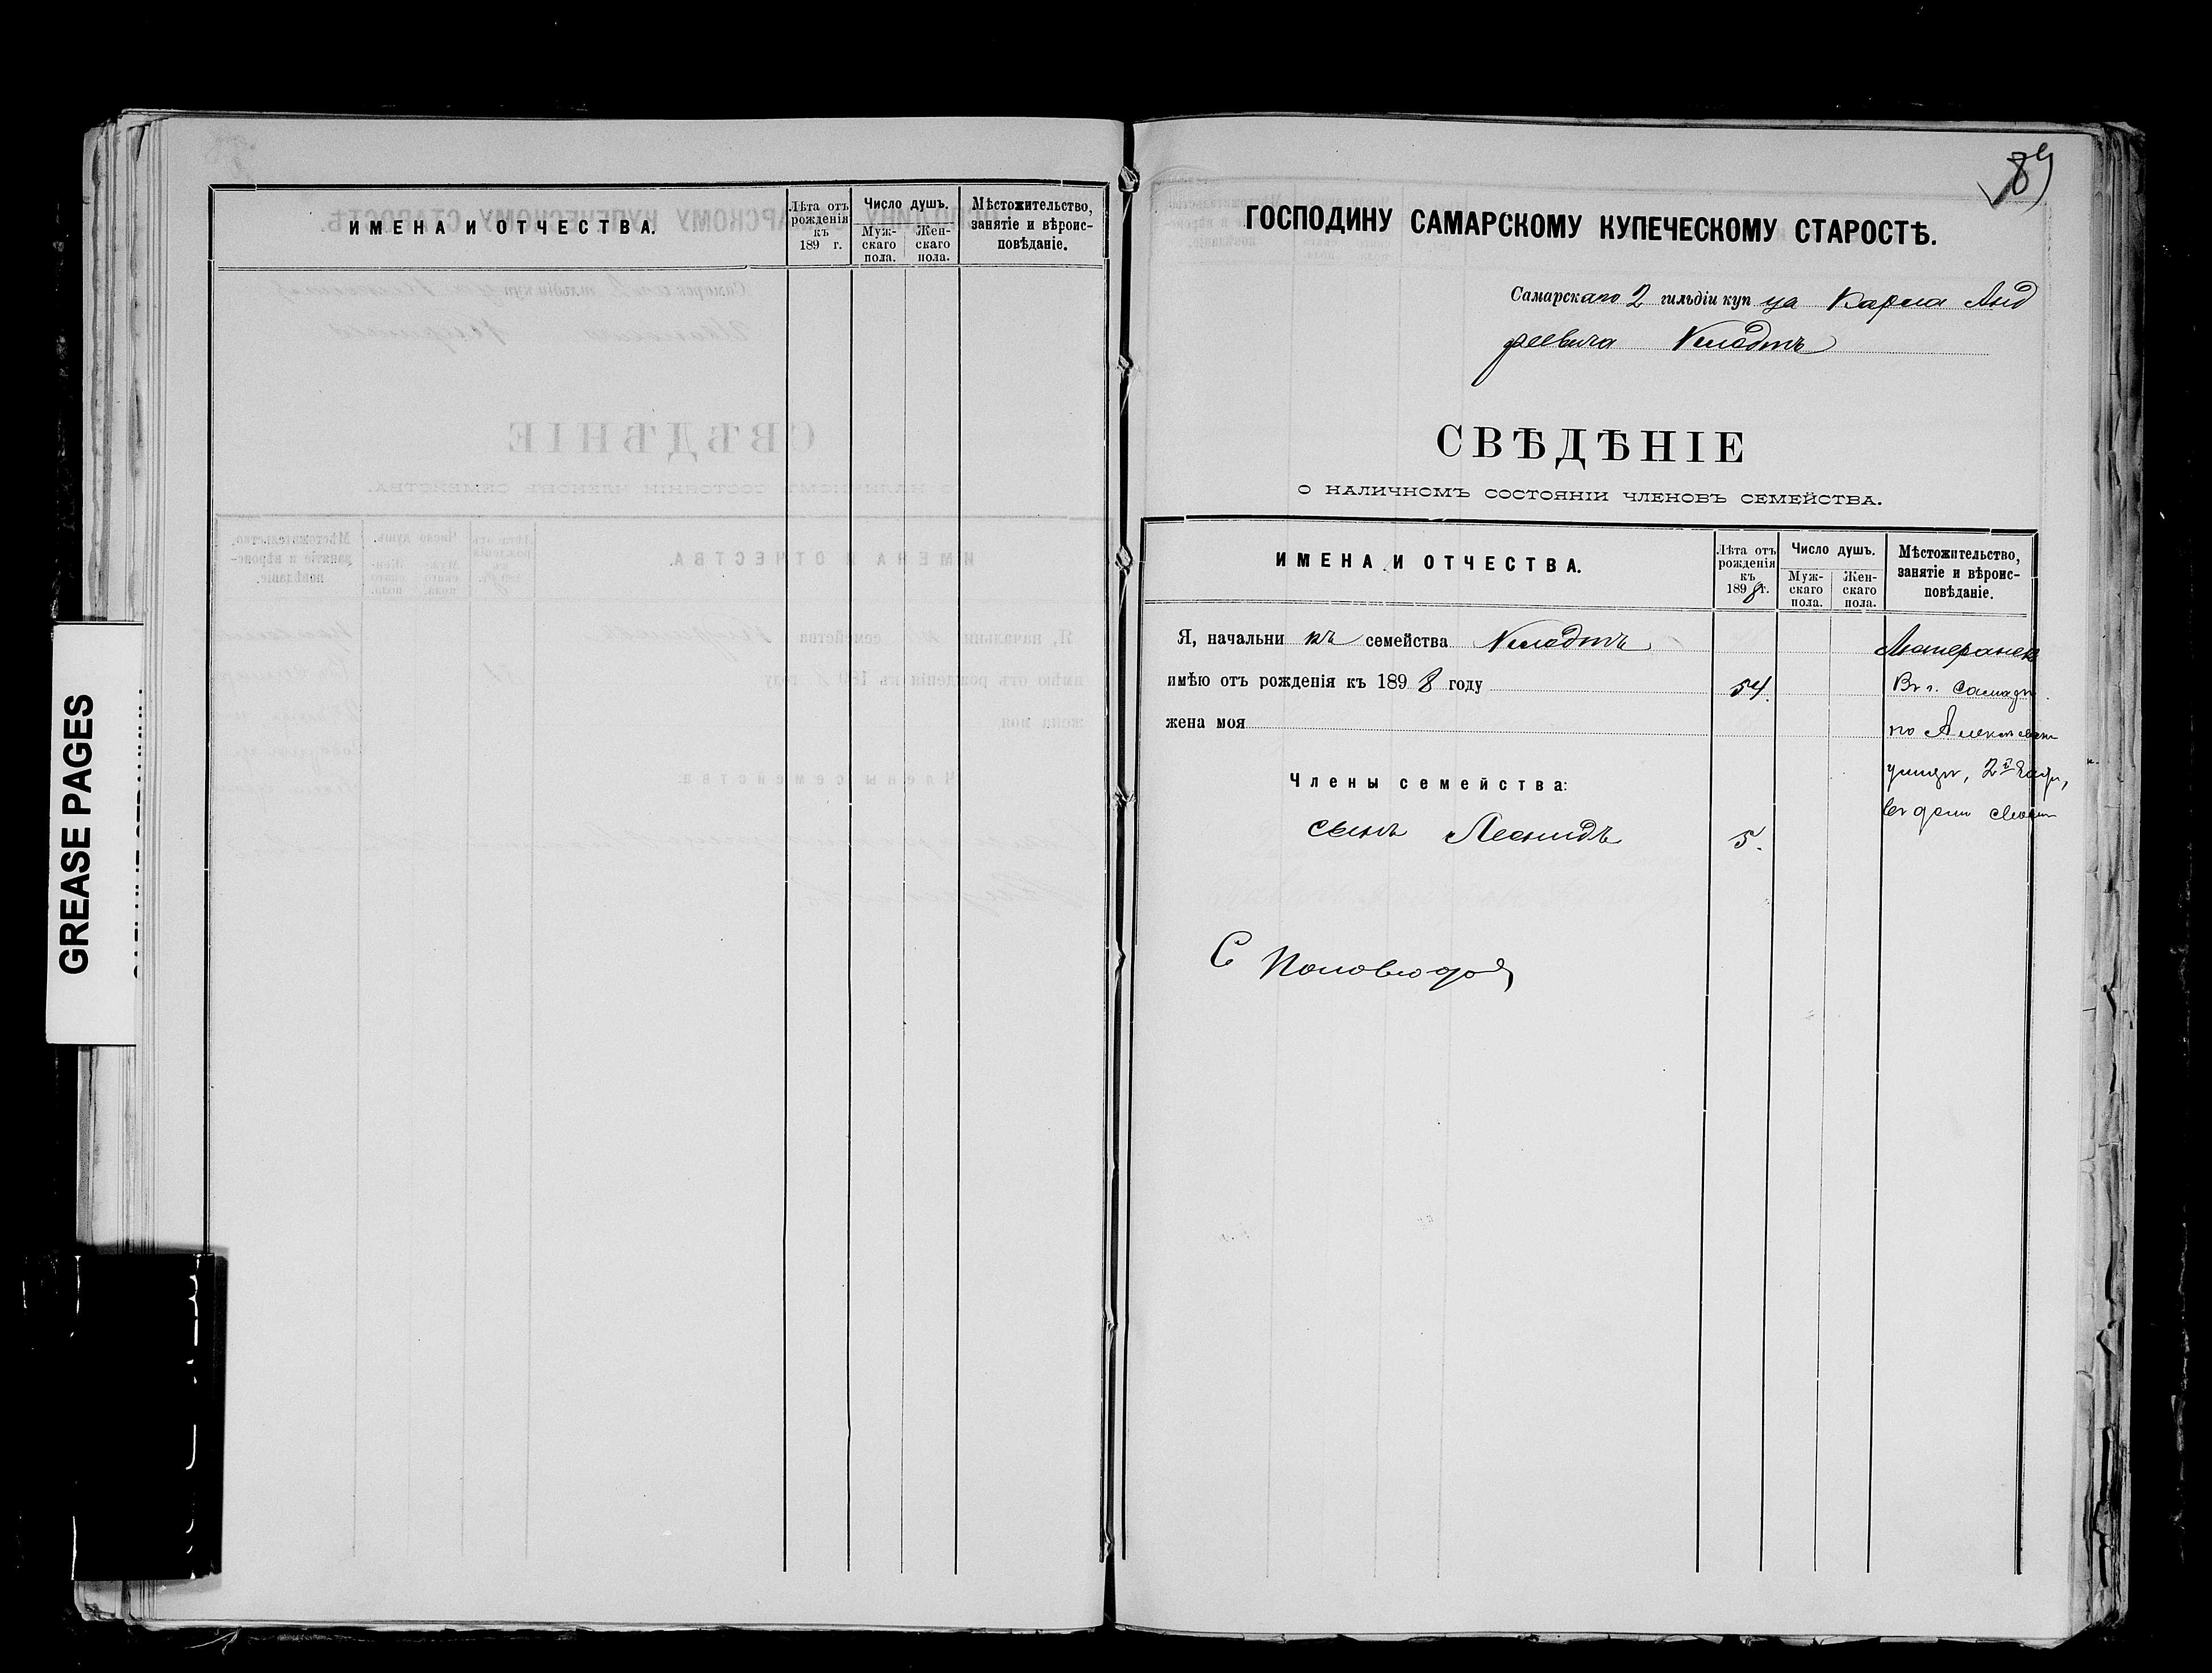 GREASE PAGES
ИМЕНА И ОТЧЕСТВА.
Лѣта отъ рожденія къ 189 г.
Число душъ.
Муж-скаго пола.
Жен-скаго пола.
Мѣстожительство, занятіе и вѣроис-повѣданіе.
89
ГОСПОДИНУ САМАРСКОМУ КУПЕЧЕСКОМУ СТАРОСТѢ.
Самарскаго 2 гильдіи купца Карла Анд
реевича Клодтъ
СВѢДѢНІЕ
О НАЛИЧНОМЪ СОСТОЯНІИ ЧЛЕНОВЪ СЕМЕЙСТВА.
ИМЕНА И ОТЧЕСТВА.
Лѣта отъ рожденія къ 1898 г.
Число душъ.
Муж-скаго пола.
Жен-скаго пола.
Мѣстожительство, занятіе и вѣроис-повѣданіе.
Я, начальникъ семейства Клодтъ Лютеранск
имѣю отъ рожденія къ 1898 году 54. Въ г. Самарѣ
жена моя по
Члены семейства: улицѣ, 2й части,
въ домѣ
сынъ Леонидъ 5.
С